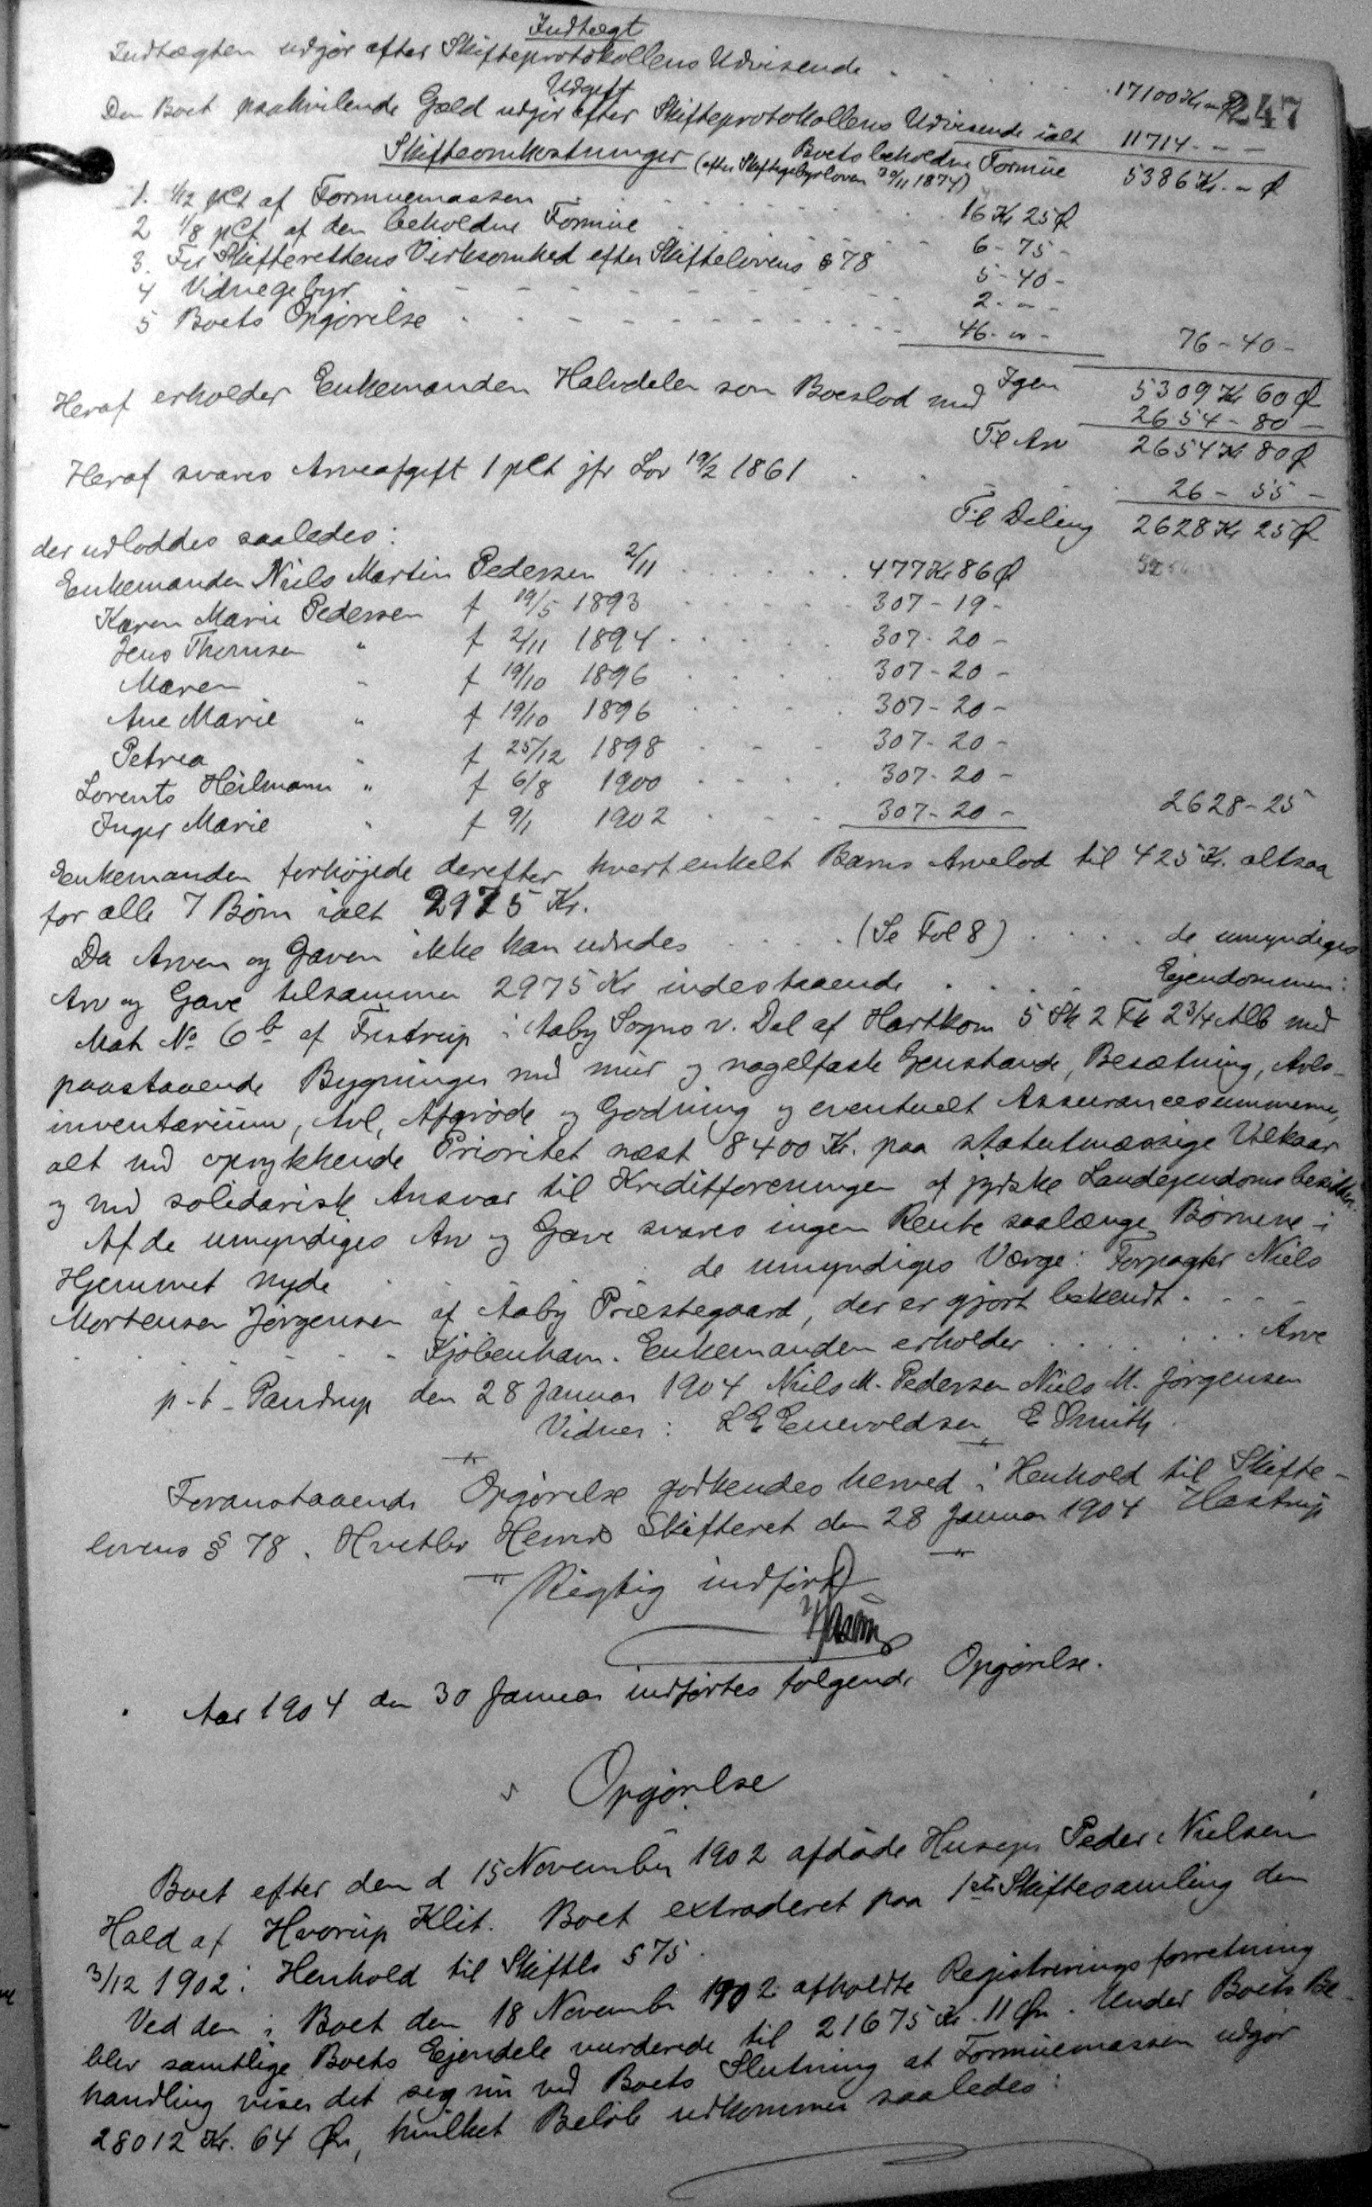 247
Indtægt
Indtægten udgjør efter Skifteprotokollens Udvisende . . . . . 17100 Kr - Ø
Udgift
Den Boet paahvilende Gæld udgjør efter Skifteprotokollens Udvisende ialt 11714 - - -
Boets beholdne Formue 5386 Kr. - Ø
Skifteomkostninger (efter Skiftegebyrloven 30/11 1874)
1. 1/12 pCt af Formuemassen . . . . . 16 Kr 25 Ø
2 1/8 pCt af den beholdne Formue . . . . . 6 - 75 -
3. For Skifterettens Virksomhed efter Skiftelovens § 78 5 - 40 -
4 Vidnegebyr . - - - - - - 2 - " -
5 Boets Opgjørelse . - - - - - - 46 - " - 76 - 40 -
Igen 5309 Kr 60 Ø
Heraf erholder Enkemanden Halvdelen som Boeslod med 2654 - 80 -
Til Arv 2654 Kr 80 Ø
Heraf svares Arveafgift 1 pCt jfr Lov 19/2 1861 . . . . 26 - 55 -
Til Deling 2628 Kr 25 Ø
der udloddes saaledes:
Enkemanden Niels Martin Pedersen 2/11 . . . . . 477 Kr 86 Ø
Karen Marie Pedersen f 19/5 1893 . . . . . 307 - 19 -
Jens Thomsen " f 2/11 1894 . . . . 307 - 20 -
Maren " f 19/10 1896 . . . . 307 - 20 -
Ane Marie " f 19/10 1896 . . . . 307 - 20 -
Petrea " f 25/12 1898 . . . 307 - 20 -
Lorents Heilmann " f 6/8 1900 . . . . 307 - 20 -
Inger Marie " f 9/1 1902 . . . 307 - 20 - 2628 - 25
Enkemanden forhøjede derefter hvert enkelt Barns Arvelod til 425 Kr. altsaa
for alle 7 Børn ialt 2975 Kr.
Da Arven og Gaven ikke kan udredes . . . . (Se Fol 8) . . . . de umyndiges
Arv og Gave tilsammen 2975 Kr indestaaende . . . . Ejendommen:
Mat No 6b af Fristrup i Aaby Sogn v. Del af Hartkorn 5 Sk 2 Fk 2 3/4 Alb med
paastaaende Bygninger med mur og nagelfaste Genstande, Besætning, Avls-
inventarium, Avl, Afgrøde og Gødning og eventuelt Assurancesummerne,
alt med oprykkende Prioritet næst 8400 Kr. paa statutmæssige Vilkaar
og med solidarisk Ansvar til Kreditforeningen af jydske Landejendomsbesiddere.
Af de umyndiges Arv og Gave svares ingen Rente saalænge Børnene i
Hjemmet nyde . . . de umyndiges Værge: Forpagter Niels
Mortensen Jørgensen af Aaby Præstegaard, der er gjort bekendt . - - -
. . . . . Kjøbenhavn. Enkemanden erholder . . . . . . . Arve
p-t- Pandrup den 28 Januar 1904 Niels M. Pedersen Niels M. Jørgensen
Vidner: L E Enevoldsen E Smith
Foranstaaende Opgjørelse godkendes herved i Henhold til Skifte-
lovens § 78. Hvetbo Herreds Skifteret den 28 Januar 1904 Hastrup
Rigtig indført
Aar 1904 den 30 Januar indførtes følgende Opgjørelse.
Opgjørelse
Boet efter den d 15 November 1902 afdøde Husejer Peder Nielsen
Hald af Hvorup Klit. Boet extraderet paa 1ste Skiftesamling den
3/12 1902 i Henhold til Skiftls § 75.
Ved den i Boet den 18 November 1902 afholdte Registreringsforretning
blev samtlige Boets Ejendele vurderede til 21675 Kr. 11 Øre. Under Boets Be-
handling viser det sig nu ved Boets Slutning at Formuemassen udgør
28012 Kr. 64 Øre, hvilket Beløb udkommer saaledes: